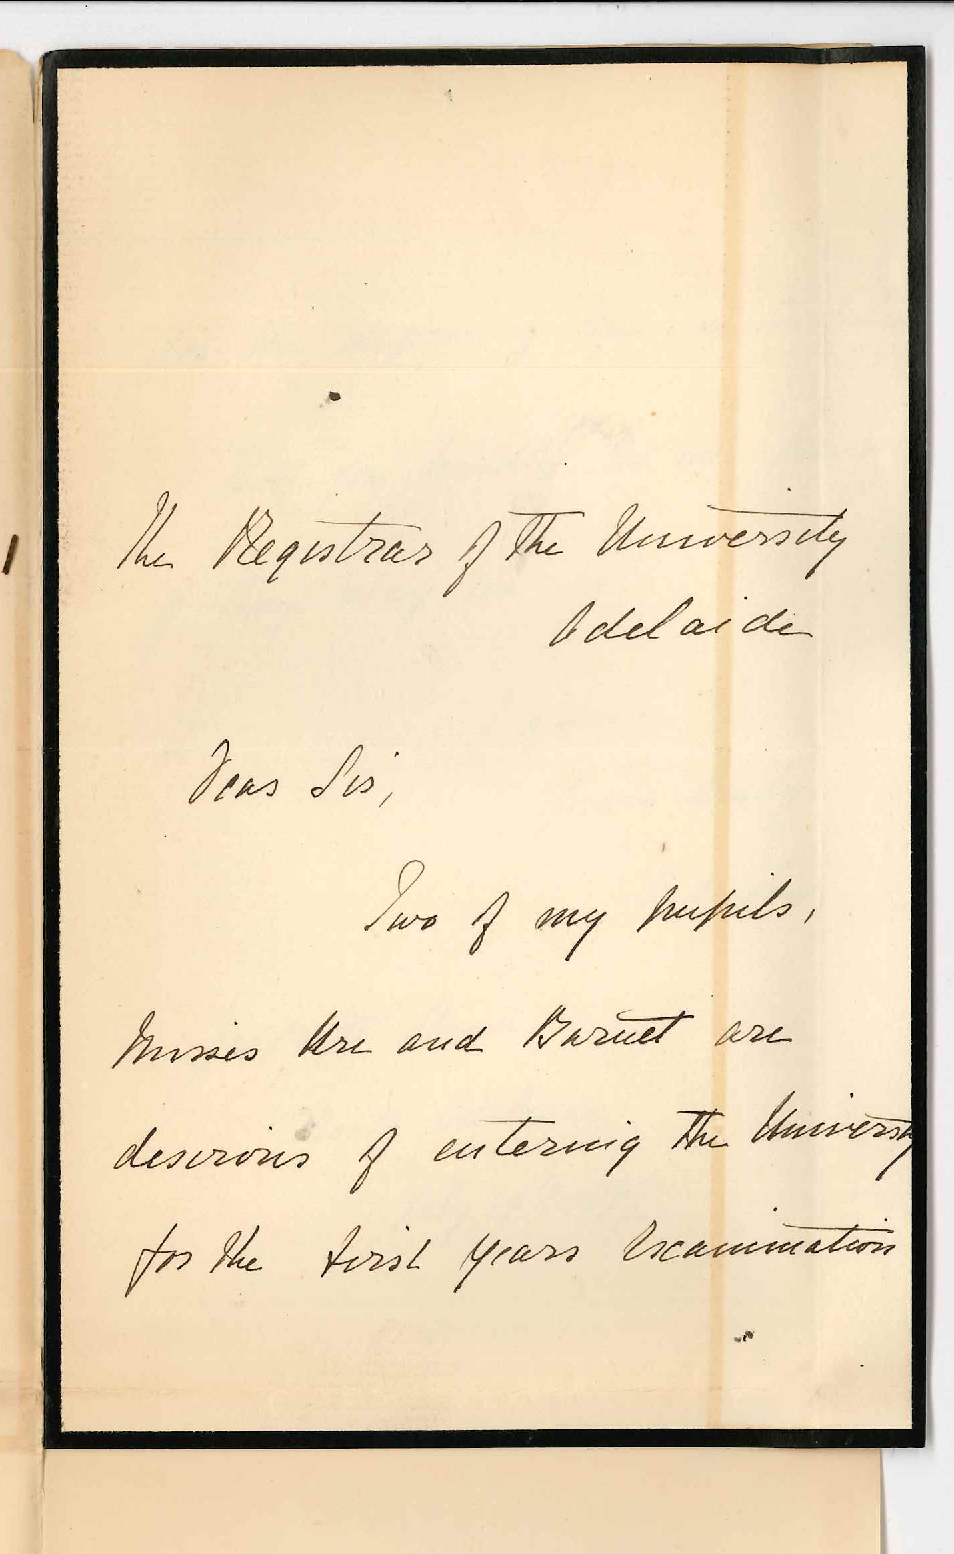 The Registrar of the University
Adelaide
Dear Sir,
Two of my pupils,
Misses Ure and Barnet are
desirous of entering the University
for the first years Examination